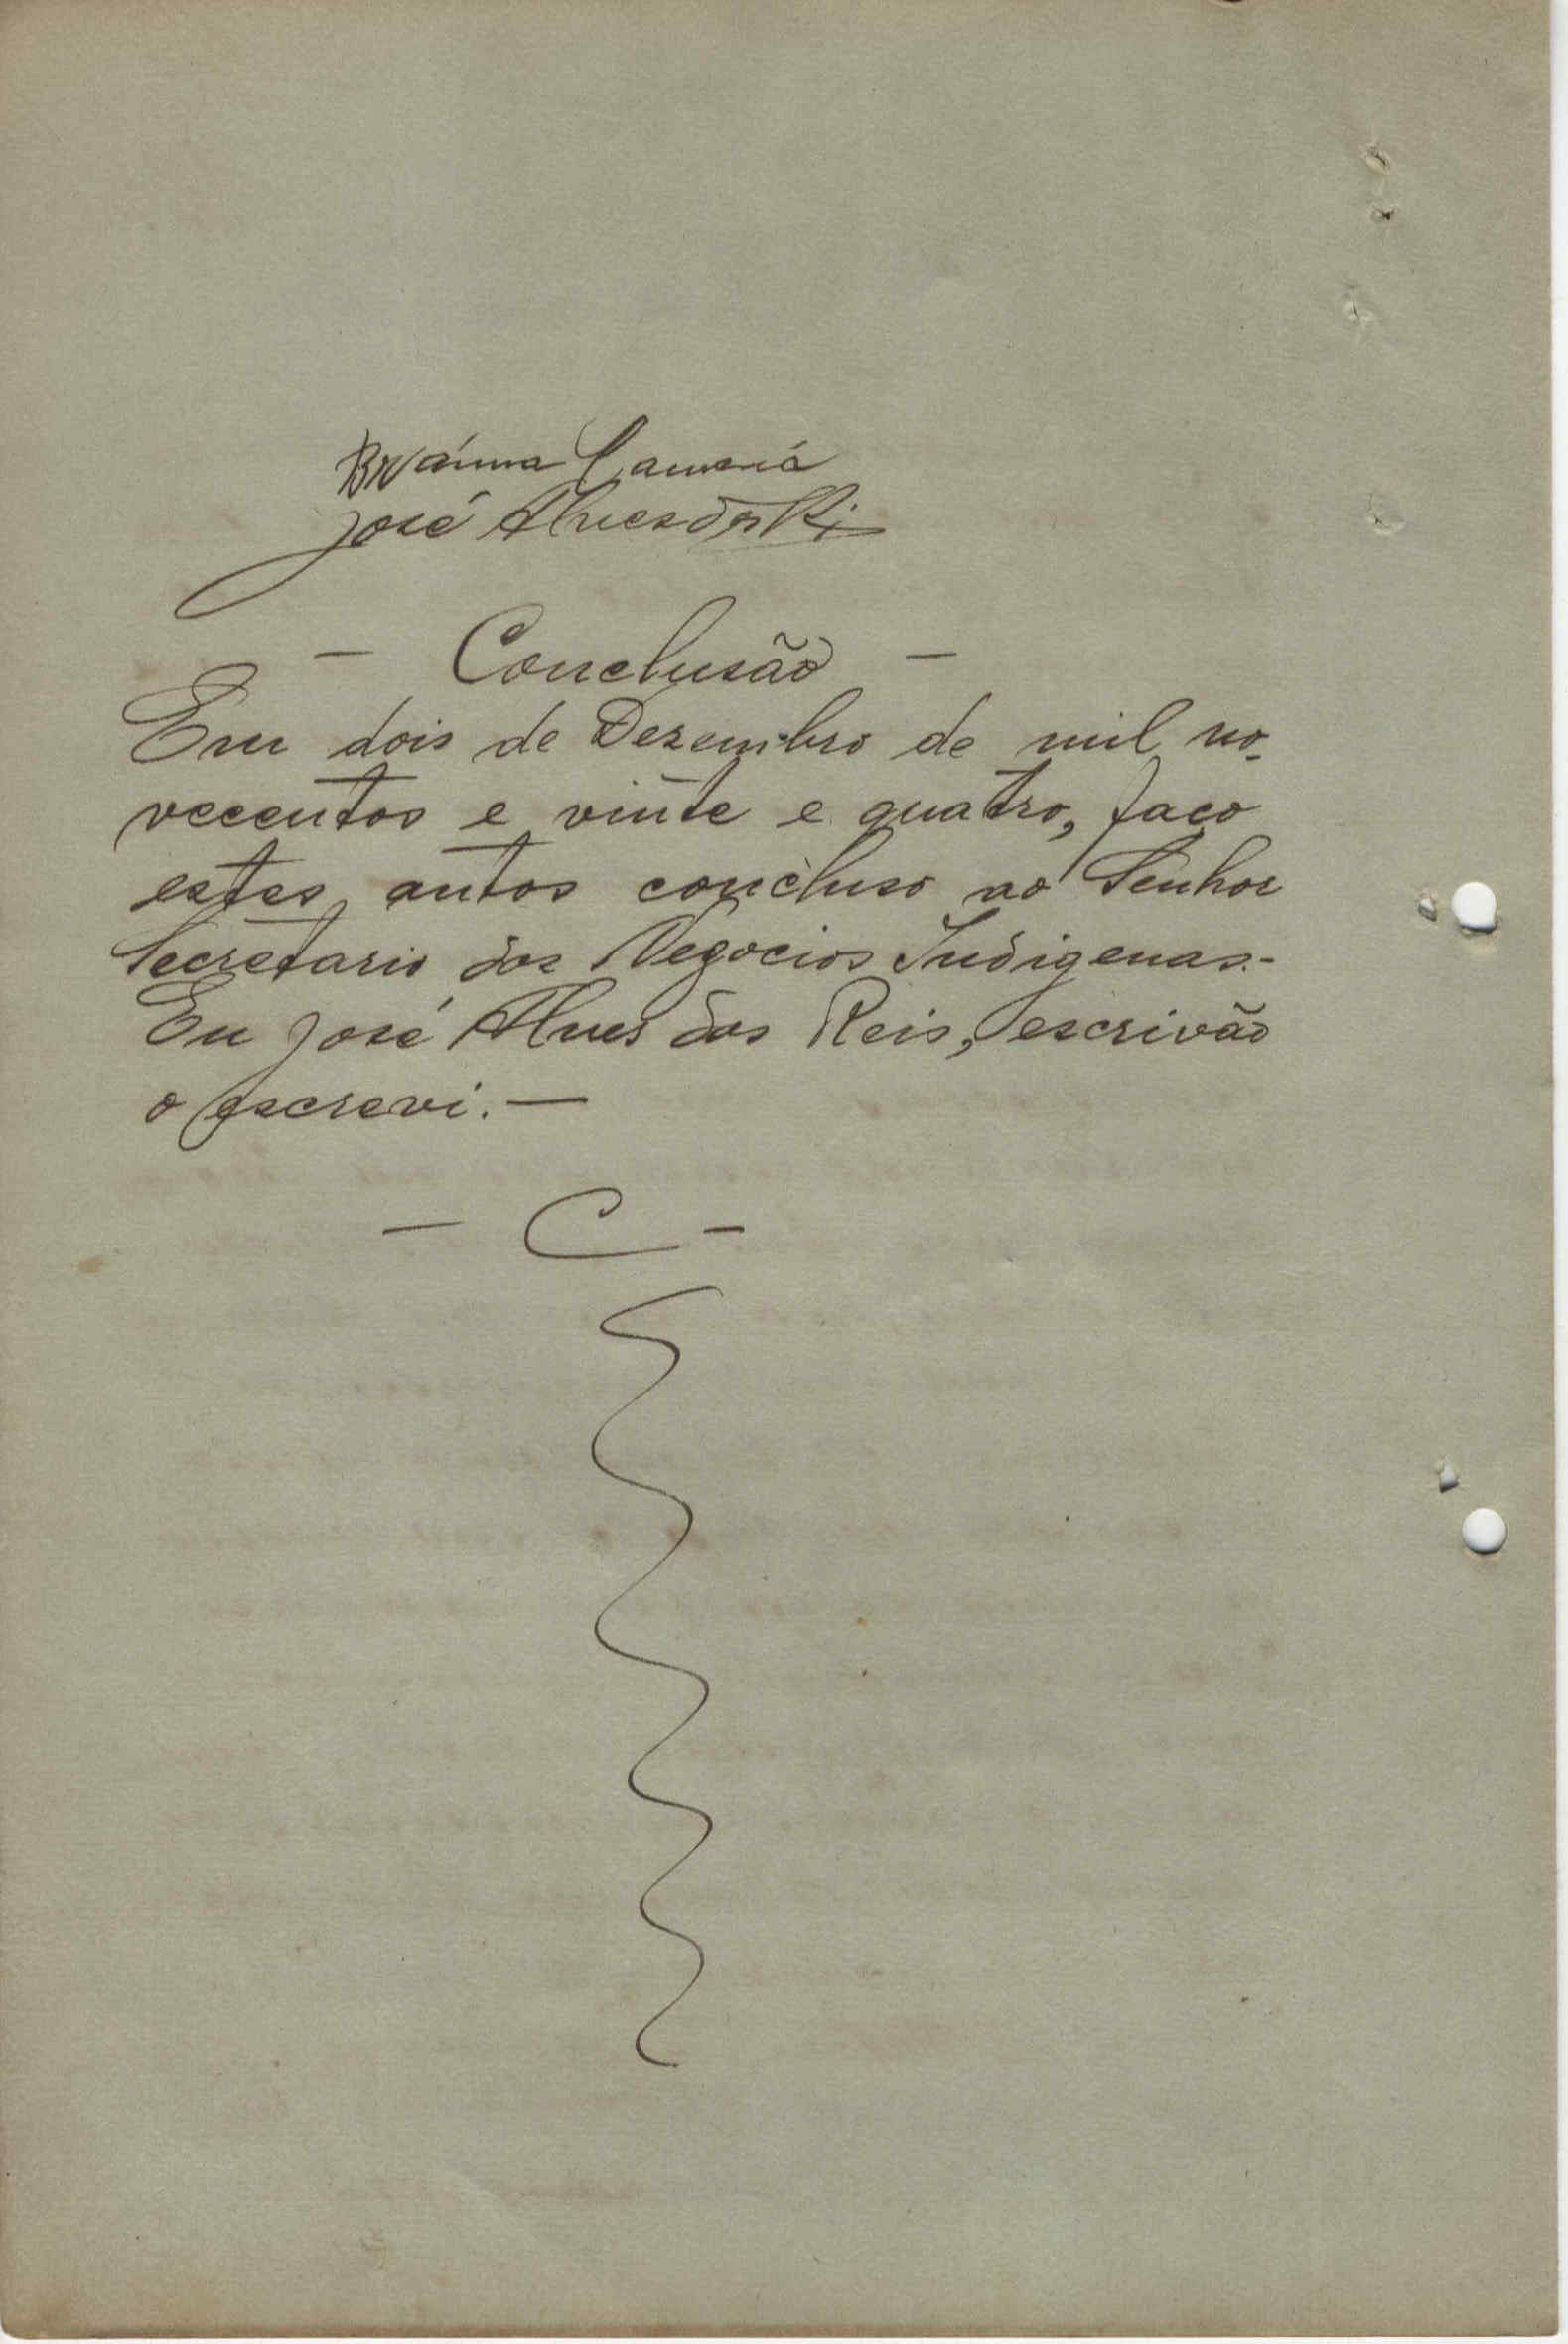 José Alves dos Reis
— Conclusão —
Em dois de Dezembro de mil no-
vecentos e vinte e quatro, faço
estes autos concluso ao Senhor
Secretario dos Negocios Indigenas.-
Eu José Alves dos Reis, escrivão
o escrevi. —
— C —